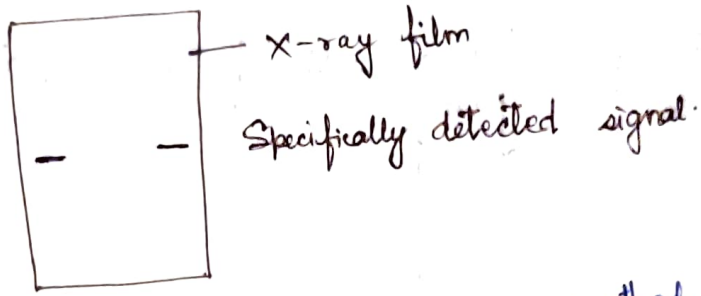 X-ray film
Specifically detected signal.